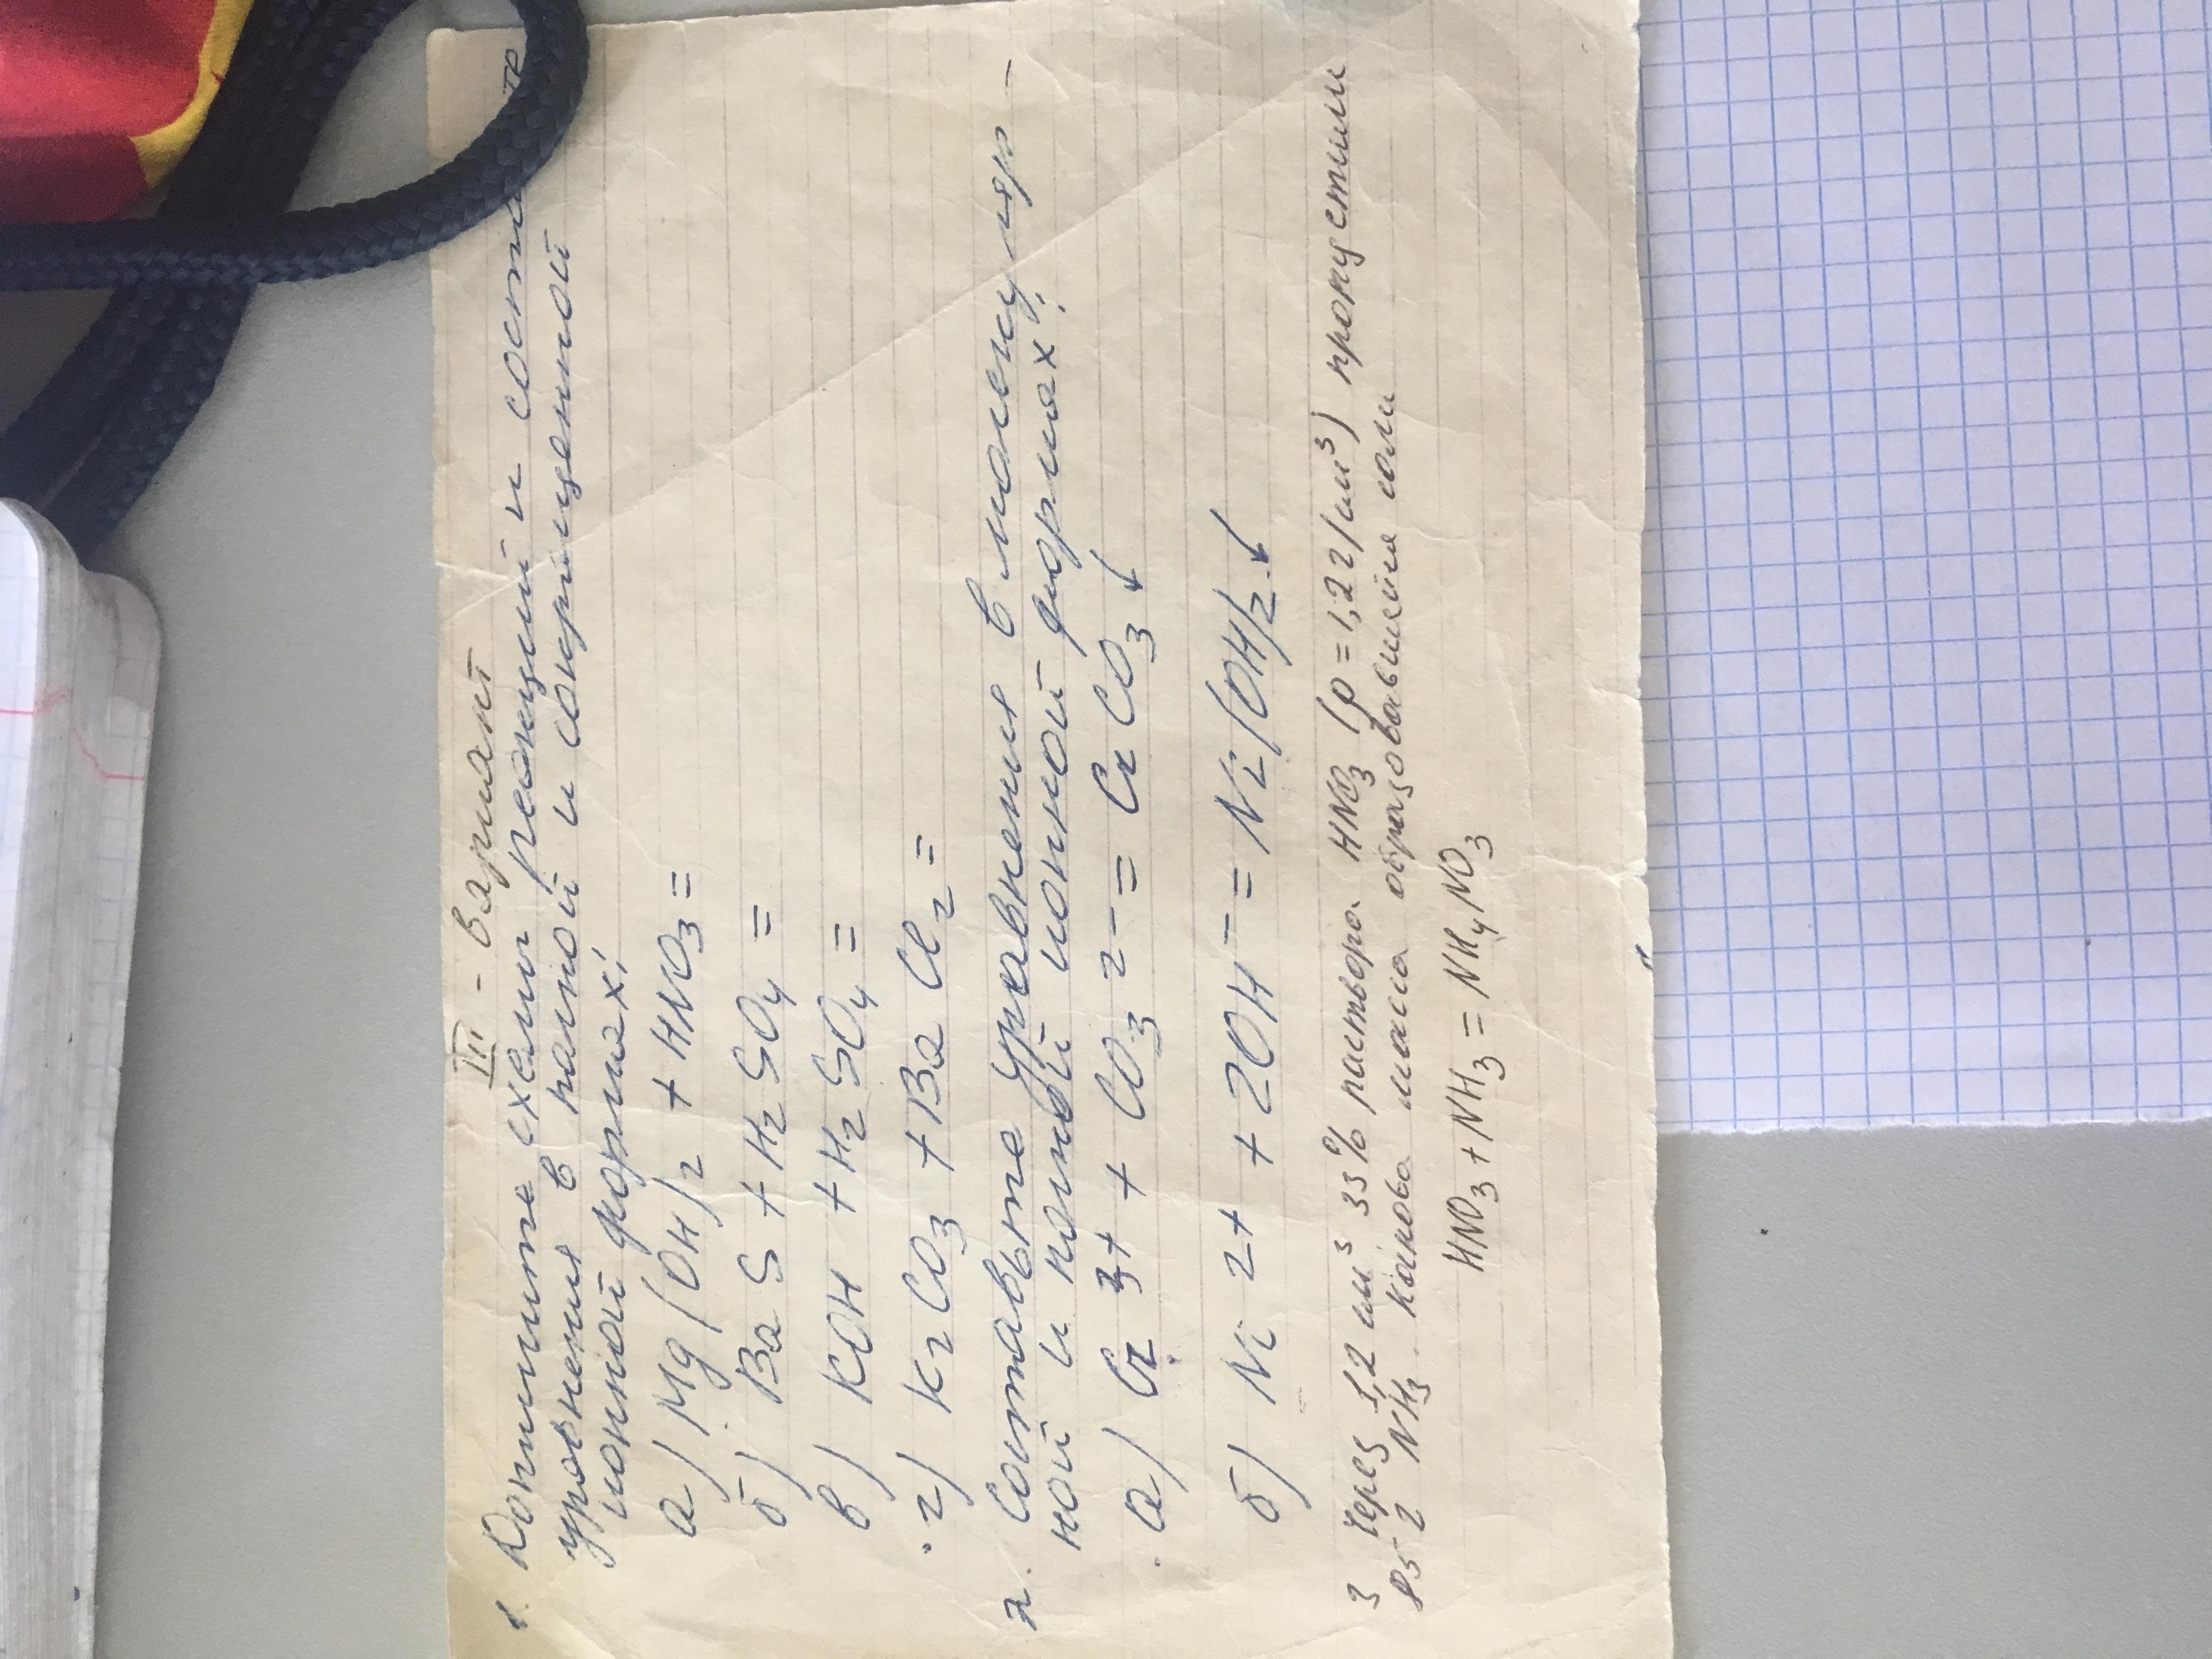 III - вариант
1. Допишите схемы реакций и соста те
уравнения в полной и сокращенной
ионной формах:
а) Mg(OH)2 + HNO3 =
б) BaS + H2SO4 =
в) KOH + H2SO4 =
г) K2CO3 + BaCl2 =
2. Составьте уравнения в молекуляр -
ной и полной ионной формах:
а) Cr 3+ + CO3 2- = CrCO3↓
б) Ni 2+ + 2OH- = Ni(OH)2↓
3 Через 1,2 см3 33% раствора HNO3 (ρ=1,2 г/см3) пропустили
г NH3. Какова масса образовавшейся соли
HNO3 + NH3 = NH4NO3